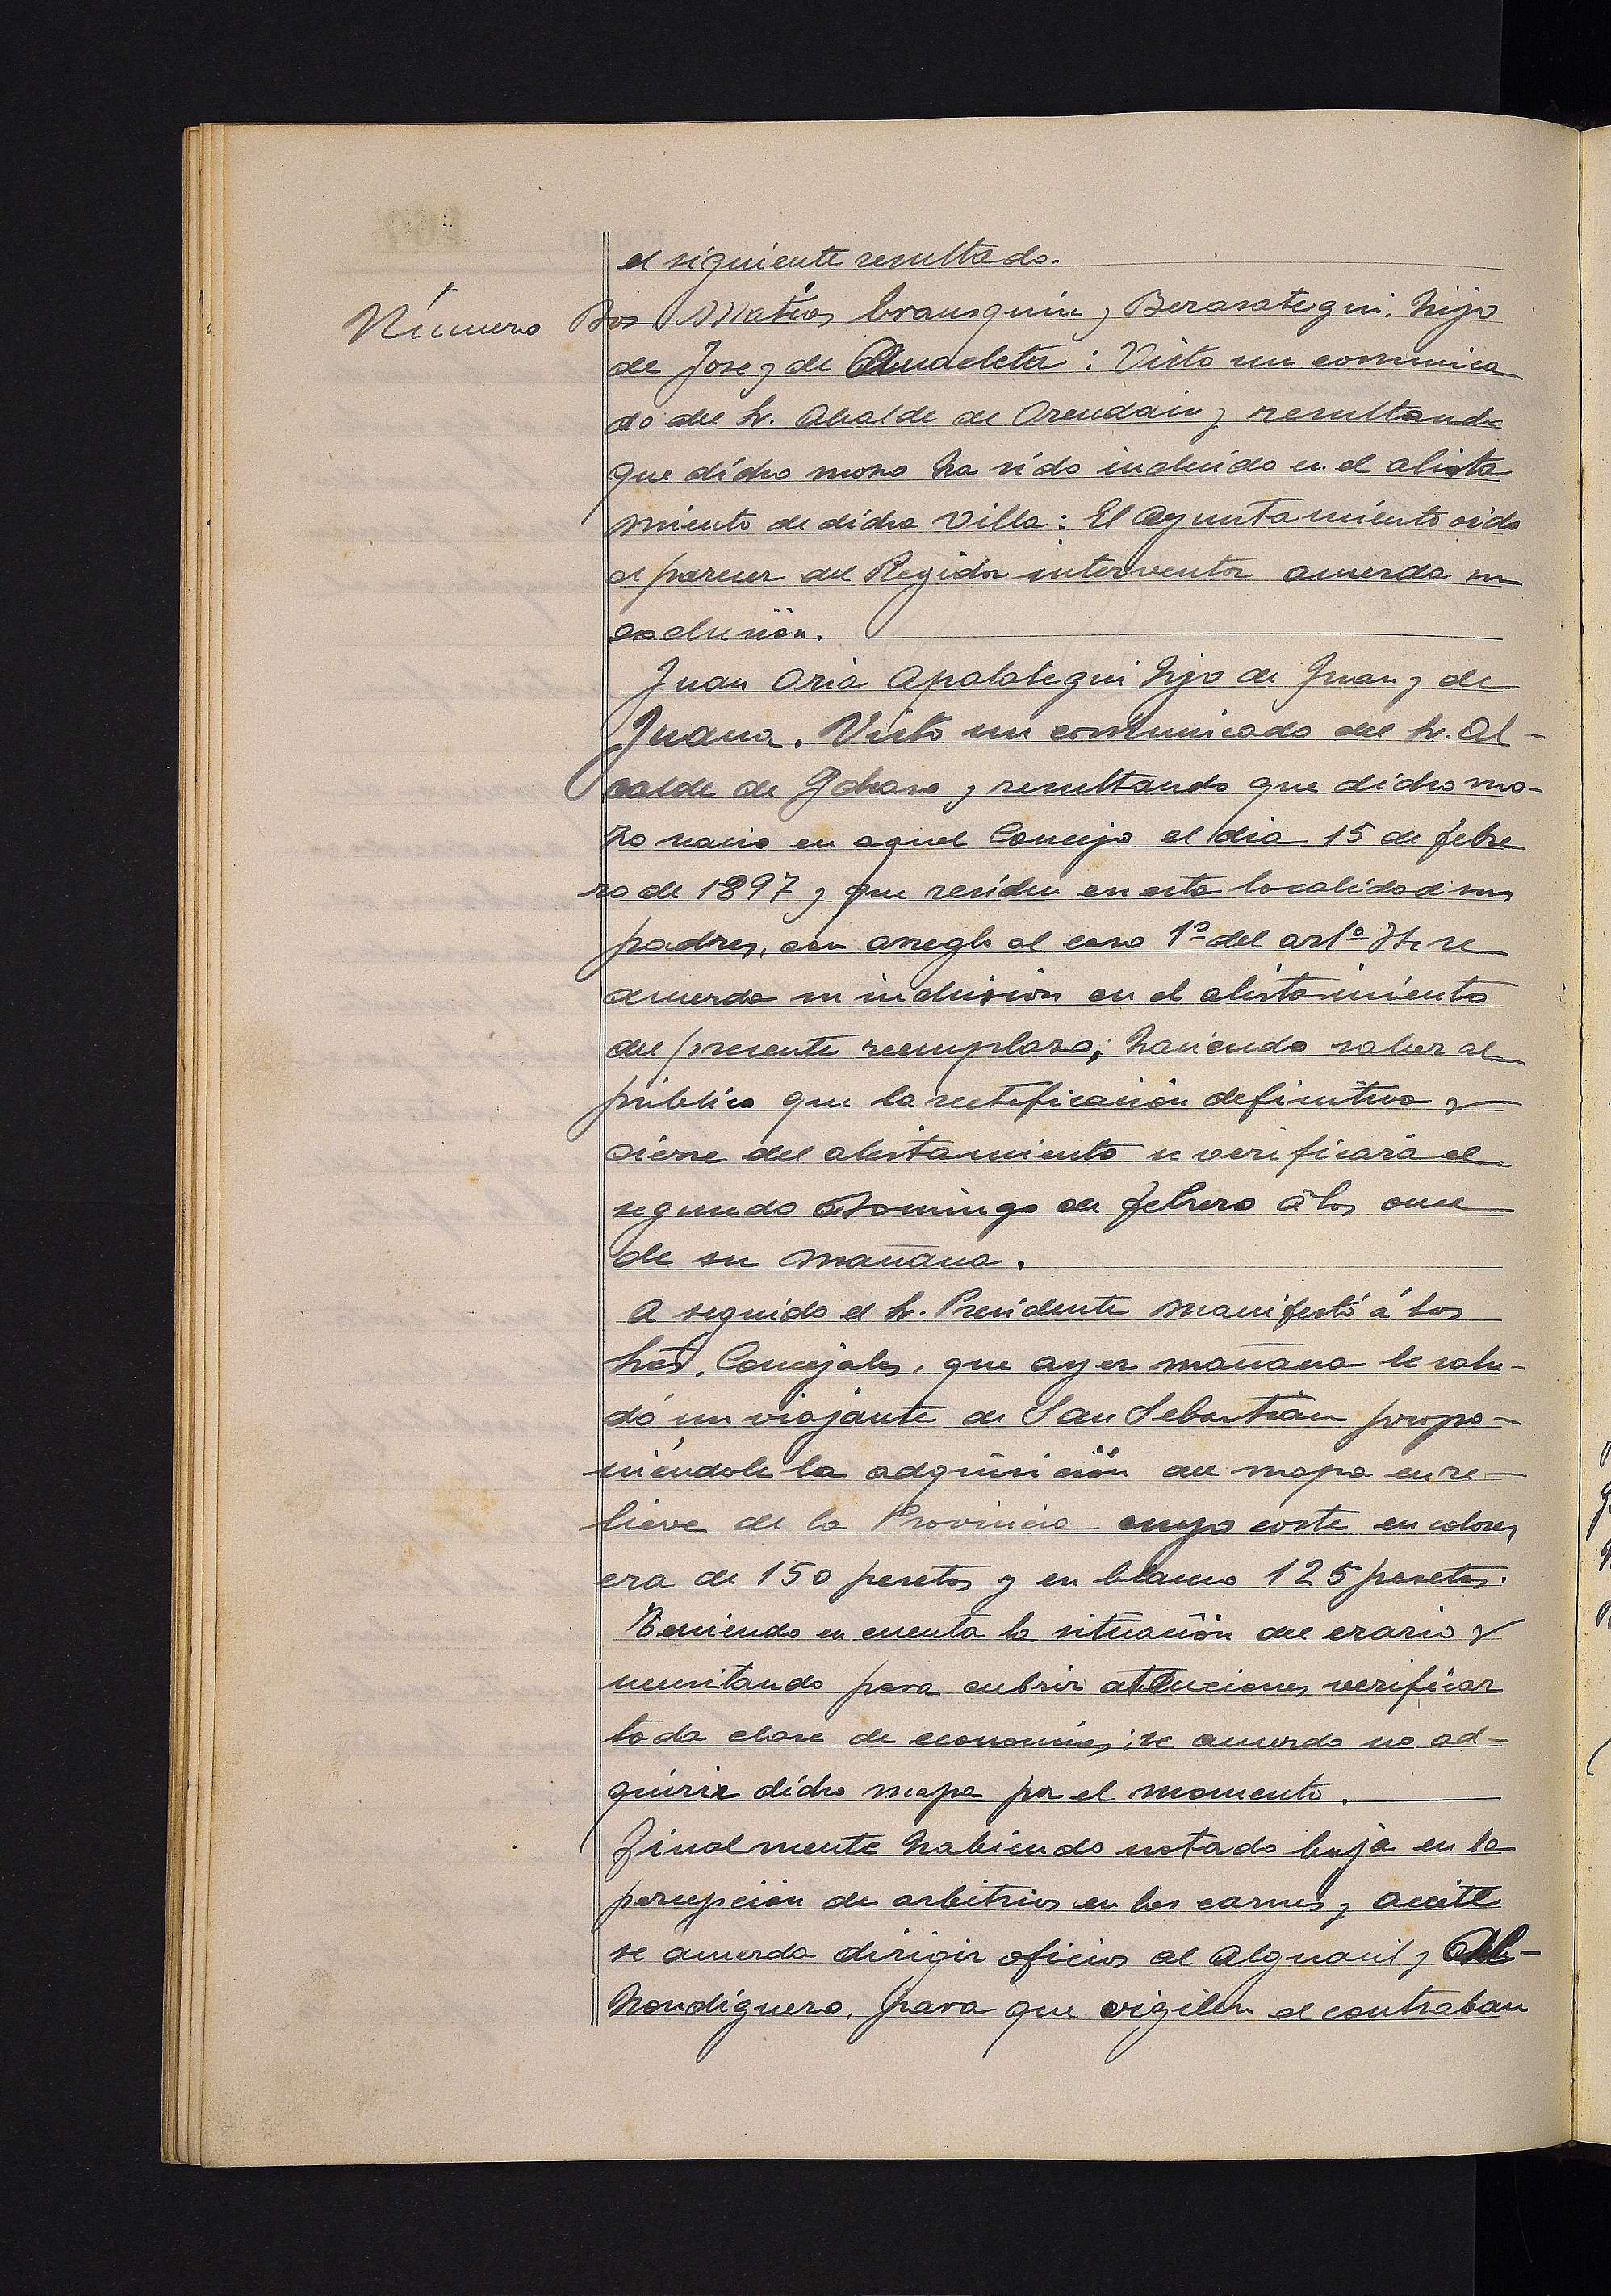 el siguiente resultado.
Número Dos Matías Erausquin y Berasategui. hijo
de Jose y de Anacleta: Visto un comunica
do del Sr. Alcalde de Orendain y resultando
que dicho mozo ha sido incluido en el alista
miento de dicha Villa: El Ayuntamiento oido
el parecer del Regidor interventor acuerda su
exclusión.
Juan Oria Apalategui hijo de Juan y de
Juana. Visto un comunicado del Sr. Al-
calde de Ichaso y resultando que dicho mo-
zo nacio en aquel Concejo el dia 15 de febre
ro de 1897 y que residen en esta localidad sus
padres, con arreglo al caso 1º del artº se
acuerda su inclusion en el alistamiento
del presente reemplazo; haciendo saber al
público que la rectificación definitiva y
cierre del alistamiento se verificará el
segundo Domingo de febrero á las once
de su mañana.
A seguido el Sr. Presidente manifestó á los
Sres. Concejales, que ayer mañana le salu-
dó un viajante de San Sebastián propo-
niéndole la adquisición del mapa en re-
lieve de la Provincia cuyo coste en colores
era de 150 pesetas y en blanco 125 pesetas.
Teniendo en cuenta la situación del erario y
necesitando para cubrir atenciones verificar
toda clase de economias; se acuerda no ad-
quirir dicho mapa por el momento.
Finalmente habiendo notado baja en la
percepción de arbitrios en las carnes y aceite
se acuerda dirigir oficios al Alguacil y Al-
hondiguero, para que vigilen el contraban